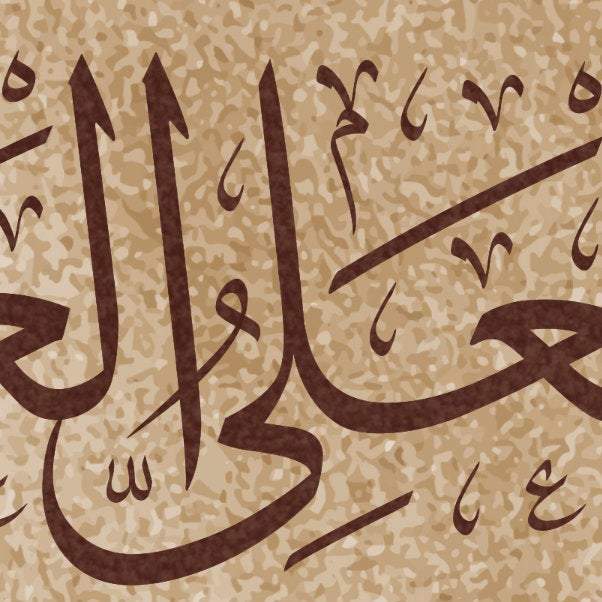 علىُّ الع